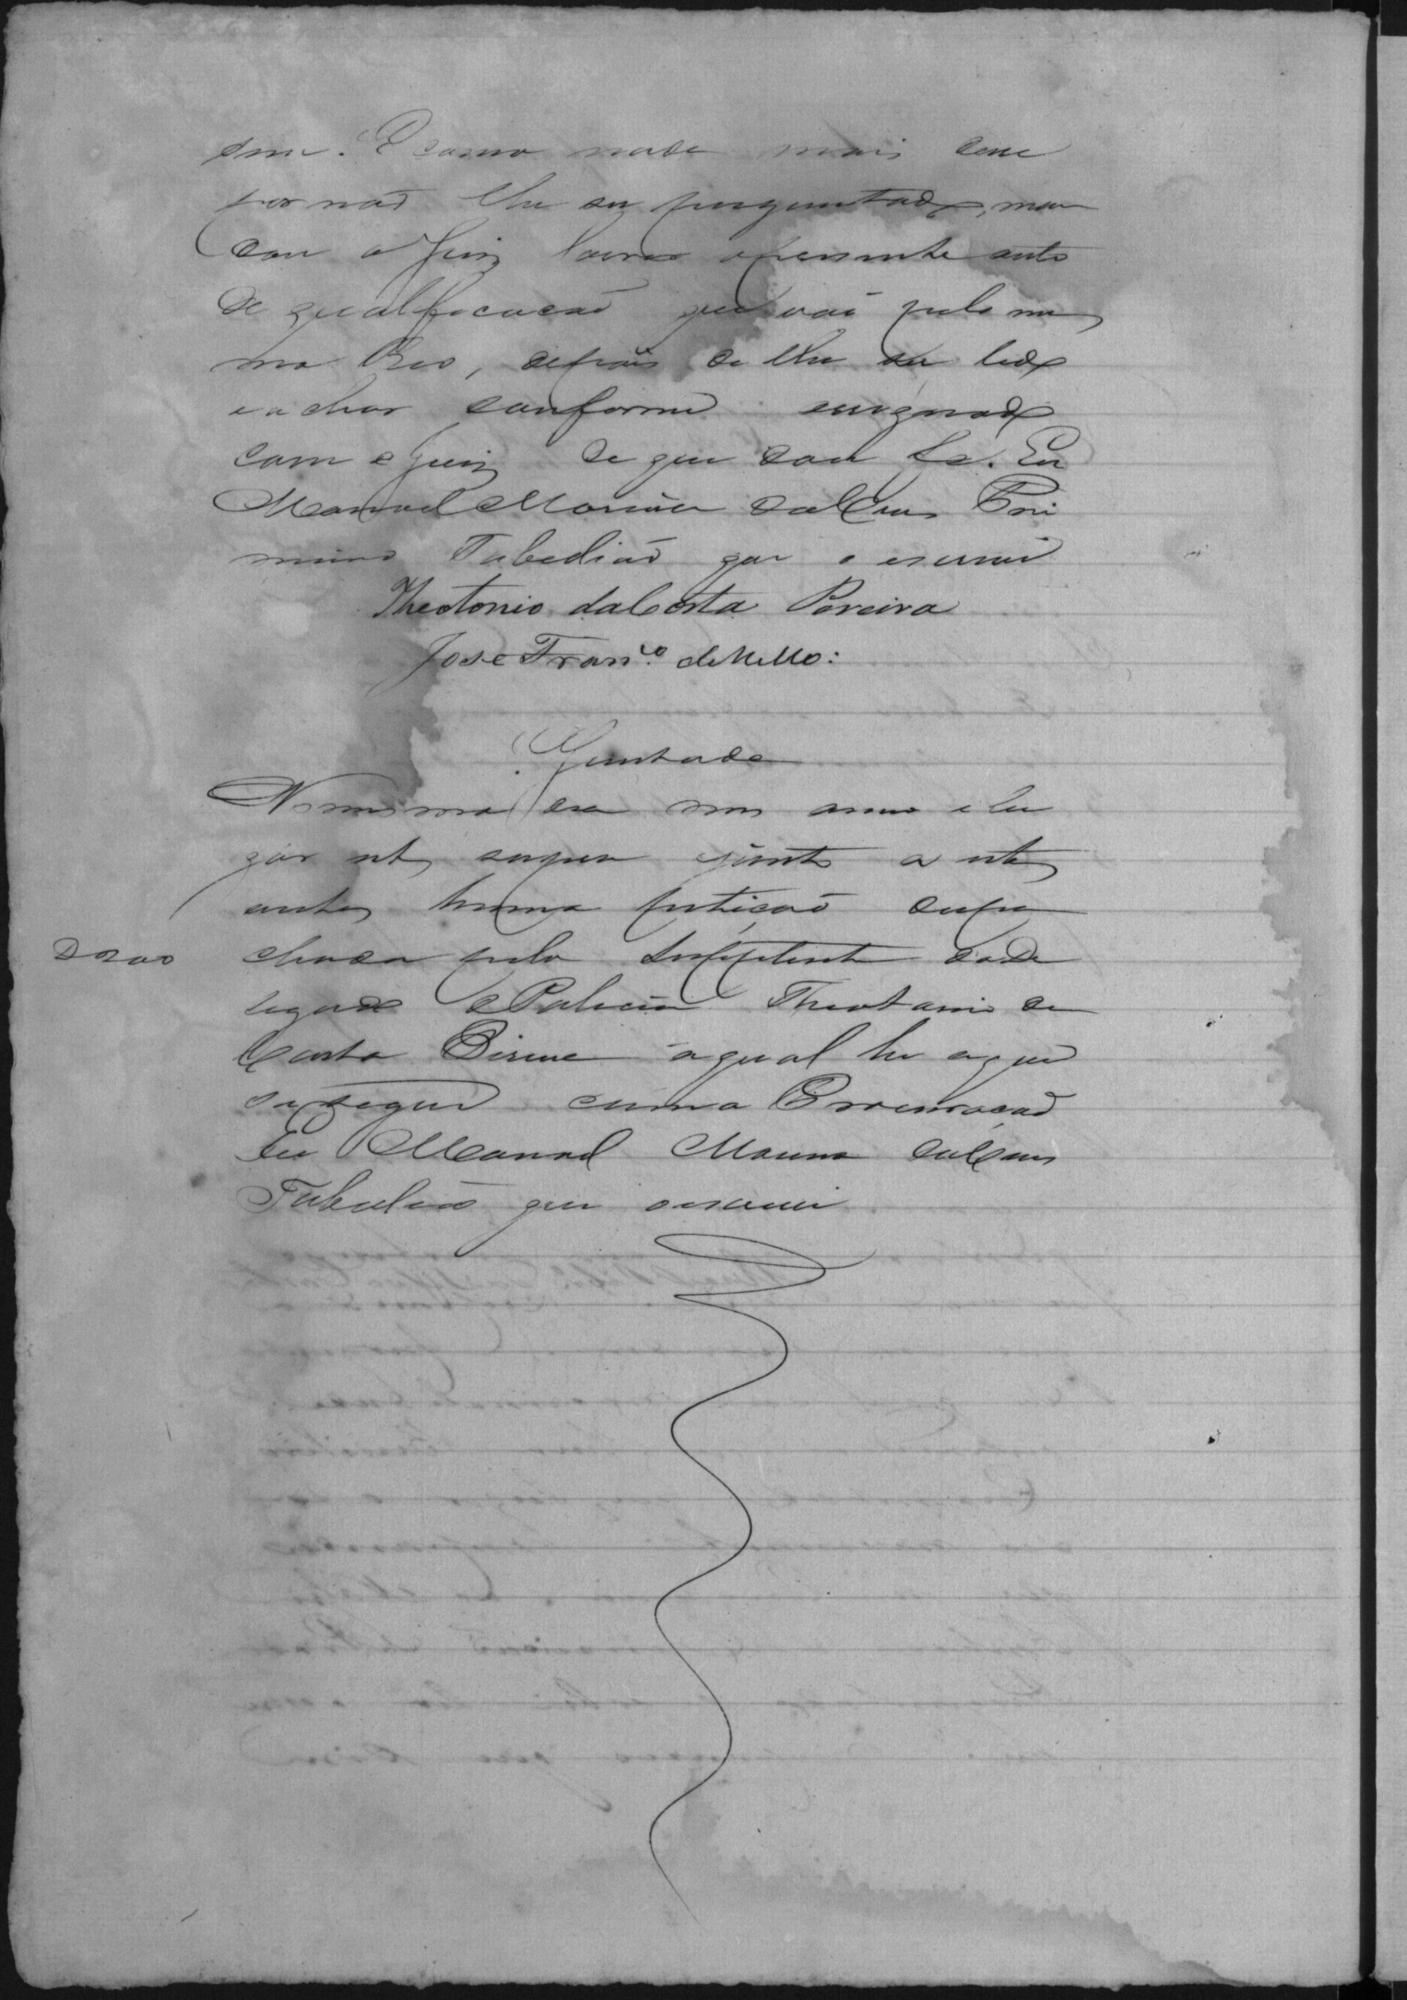 sim. E como nada mais disse
por não lhe ser perguntado, man
dou o Juiz lavrar o presente auto
de qualificacaõ que vai pelo mes
mo Reo, depois de lhe ser lido
e achar conforme assignado
com o Juiz de que dou fe. Eu
Manoel Moreira da Cruz Pri
meiro Tabelliaõ que o escrevi
Theotonio da Costa Pereira
José Fran.co de Mello:
Juntada
No mesmo dia mes anno e lu
gar retro supra junto a estes
autos huma peticaõ despa
chada pelo Supplente do De
legado de Policia Theotonio da
Costa Pereira a qual he a que
se segue e uma Procuracaõ
Eu Manoel Moreira da Cruz
Tabelliaõ que o escrevi